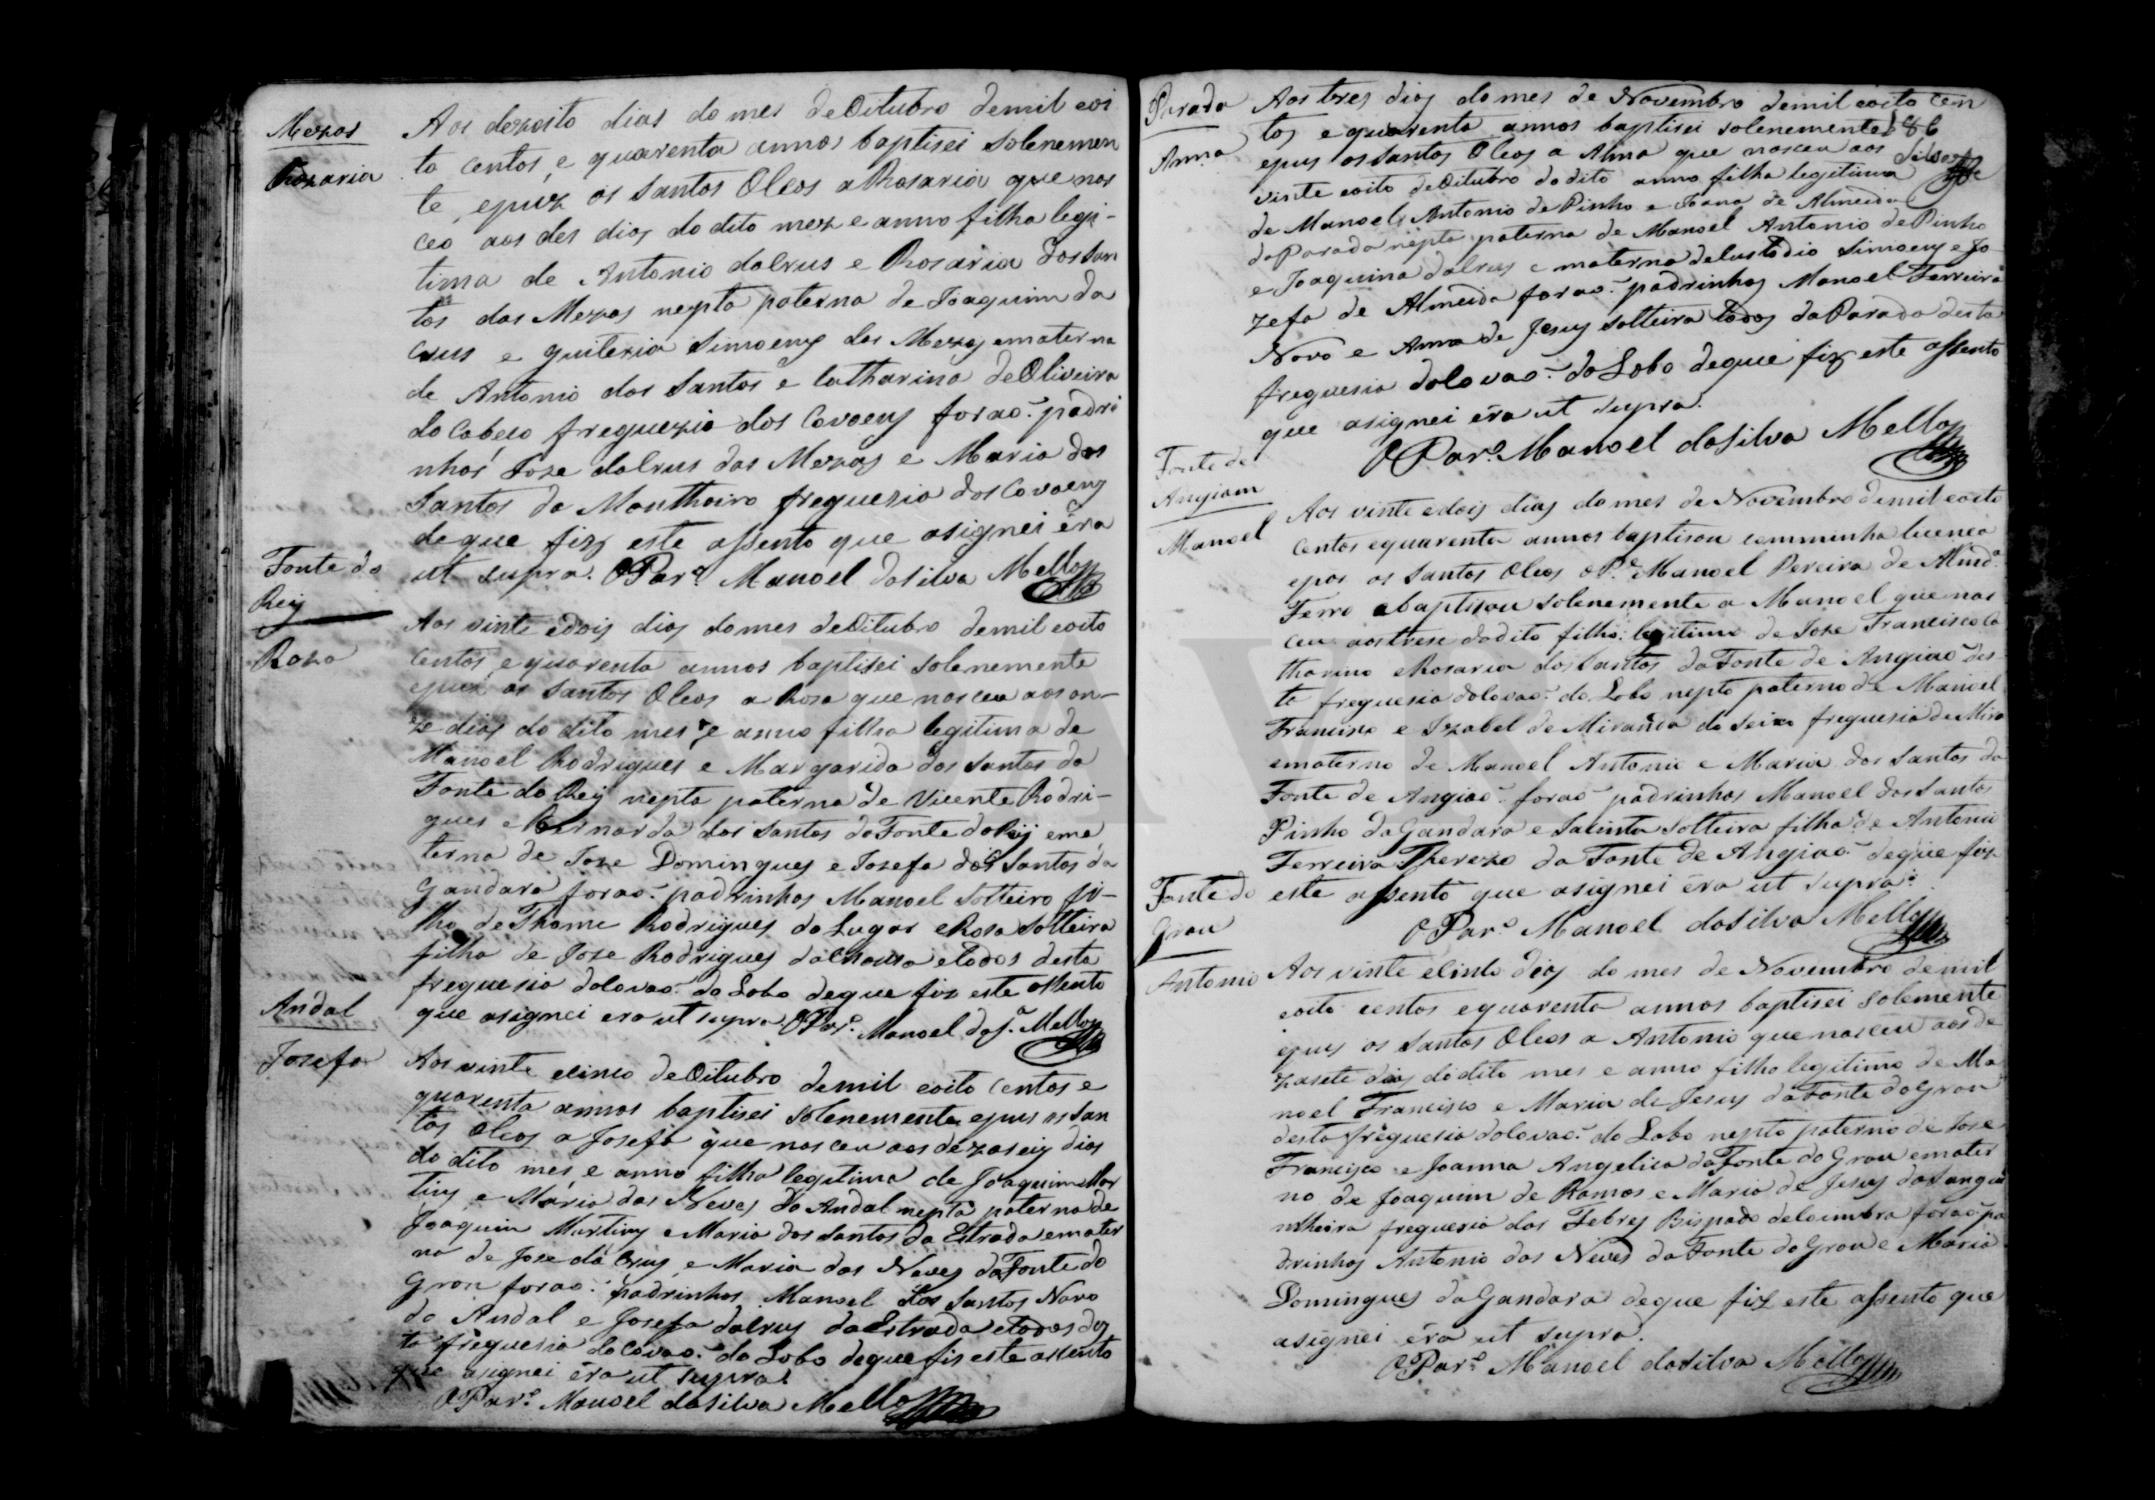 Mezas
Rozaria
Aos dezoito dias do mes de Oitubro de mil eoi
to centos, e quarenta annos baptisei solenemen
te, epuz os Santos Oleos a Rosaria que nas
ceo aos des dias do dito mez e anno filha legi-
tima de Antonio da Crus e Rosaria dos San
tos das Mezas nepta paterna de Joaquim da
Crus e Quiteria Simoens das Mezas ematerna
de Antonio dos Santos e Catharina de Oliveira
do Cabeco freguezia dos Covoens forao padri
nhos Joze da Crus das Mezas e Maria dos
Santos da Montheiro freguezia dos Covoens
de que fiz este assento que asignei éra
ut supra. O Par.º Manoel da Silva Mello
Fonte do
Rey
Roza
Aos vinte edois dias do mes de Oitubro de mil eoito
centos, e quarenta annos baptisei solenemente
epuz os Santos Oleos a Rosa que nasceu aos on-
ze dias do dito mes e anno filha legitima de
Manoel Rodrigues e Margarida dos Santos da
Fonte do Rey nepta paterna de Vicente Rodri-
gues e Bernarda dos Santos da Fonte do Rey ema
terna de Joze Domingues e Josefa dos Santos da
Gandara forao padrinhos Manoel Solteiro fi-
lho de Thome Rodrigues do Lugar e Rosa Solteira
filha de Joze Rodrigues etodos desta
freguesia do Covao do Lobo de que fiz este assento
que asignei era ut supra O Par.º Manoel da S.ª Mello
Andal
Jozefa
Aos vinte ecinco de Oitubro de mil eoito centos e
quarenta annos baptisei solenemente, epus os San
tos Oleos a Josefa que nasceu aos dezaseis dias
do dito mes e anno filha legitima de Joaquim Mar
tins e Maria das Neves do Andal nepta paterna de
Joaquim Martins e Maria dos Santos da Estrada emater
na de Joze da Crus e Maria das Neves da Fonte do
Grou forao padrinhos Manoel dos Santos Novo
do Andal e Josefa da Crus da Estrada etodos des
ta freguesia do Covao do Lobo de que fis este assento
que asignei éra ut supra
O Par.º Manoel da Silva Mello
Parada
Anna
186
Silva
Aos tres dias do mes de Novembro de mil eoito cen
tos e quarenta annos baptisei solenemente
epus os Santos Oleos a Anna que nasceu aos
vinte eoito de Oitubro do dito anno filha legitima
de Manoel Antonio de Pinho e Joana de Almeida
da Parada nepta paterna de Manoel Antonio de Pinho
e Joaquina da Crus e materna de Custodio Simoens e Jo
zefa de Almeida forao padrinhos Manoel Ferreira
Novo e Anna de Jesus Solteira todos da Parada desta
freguesia do Covao do Lobo de que fiz este assento
que asignei éra ut supra.
O Par.º Manoel da Silva Mello
Fonte de
Angiam
Manoel
Aos vinte edois dias do mes de Novembro de mil eoito
centos equarenta annos baptisou com minha licença
epos os Santos Oleos o P.e Manoel Pereira de Almd.ª
Ferro e baptisou solenemente a Manoel que nas
ceu aos treze do dito filho legitimo de Joze Francisco Ca
tharino e Rosaria dos Santos da Fonte de Angiao des
ta freguesia do Covao do Lobo nepto paterno de Manoel
Francisco e Izabel de Miranda do Seixo freguesia de Mira
ematerno de Manoel Antonio e Maria dos Santos da
Fonte de Angiao forao padrinhos Manoel dos Santos
Pinho da Gandara e Jacinta Solteira filha de Antonio
Ferreira Therezo da Fonte de Angiao de que fiz
este assento que asignei éra ut supra
O Par.º Manoel da Silva Mello
Fonte do
Grou
Antonio
Aos vinte ecinto dias do mes de Novembro de mil
eoito centos equarenta annos baptisei solemente
epus os Santos Oleos a Antonio que nasceu aos de
zasete dias do dito mes e anno filho legitimo de Ma
noel Francisco e Maria de Jesus da Fonte do Grou
desta freguesia do Covao do Lobo nepto paterno de Joze
Francisco e Joanna Angelica da Fonte do Grou emater
no de Joaquim de Ramos e Maria de Jesus da Sangui
nheira freguesia das Febres Bispado de Coimbra forao pa
drinhos Antonio das Neves da Fonte do Grou e Maria
Domingues da Gandara de que fiz este assento que
asignei éra ut supra.
O Par.º Manoel da Silva Mello